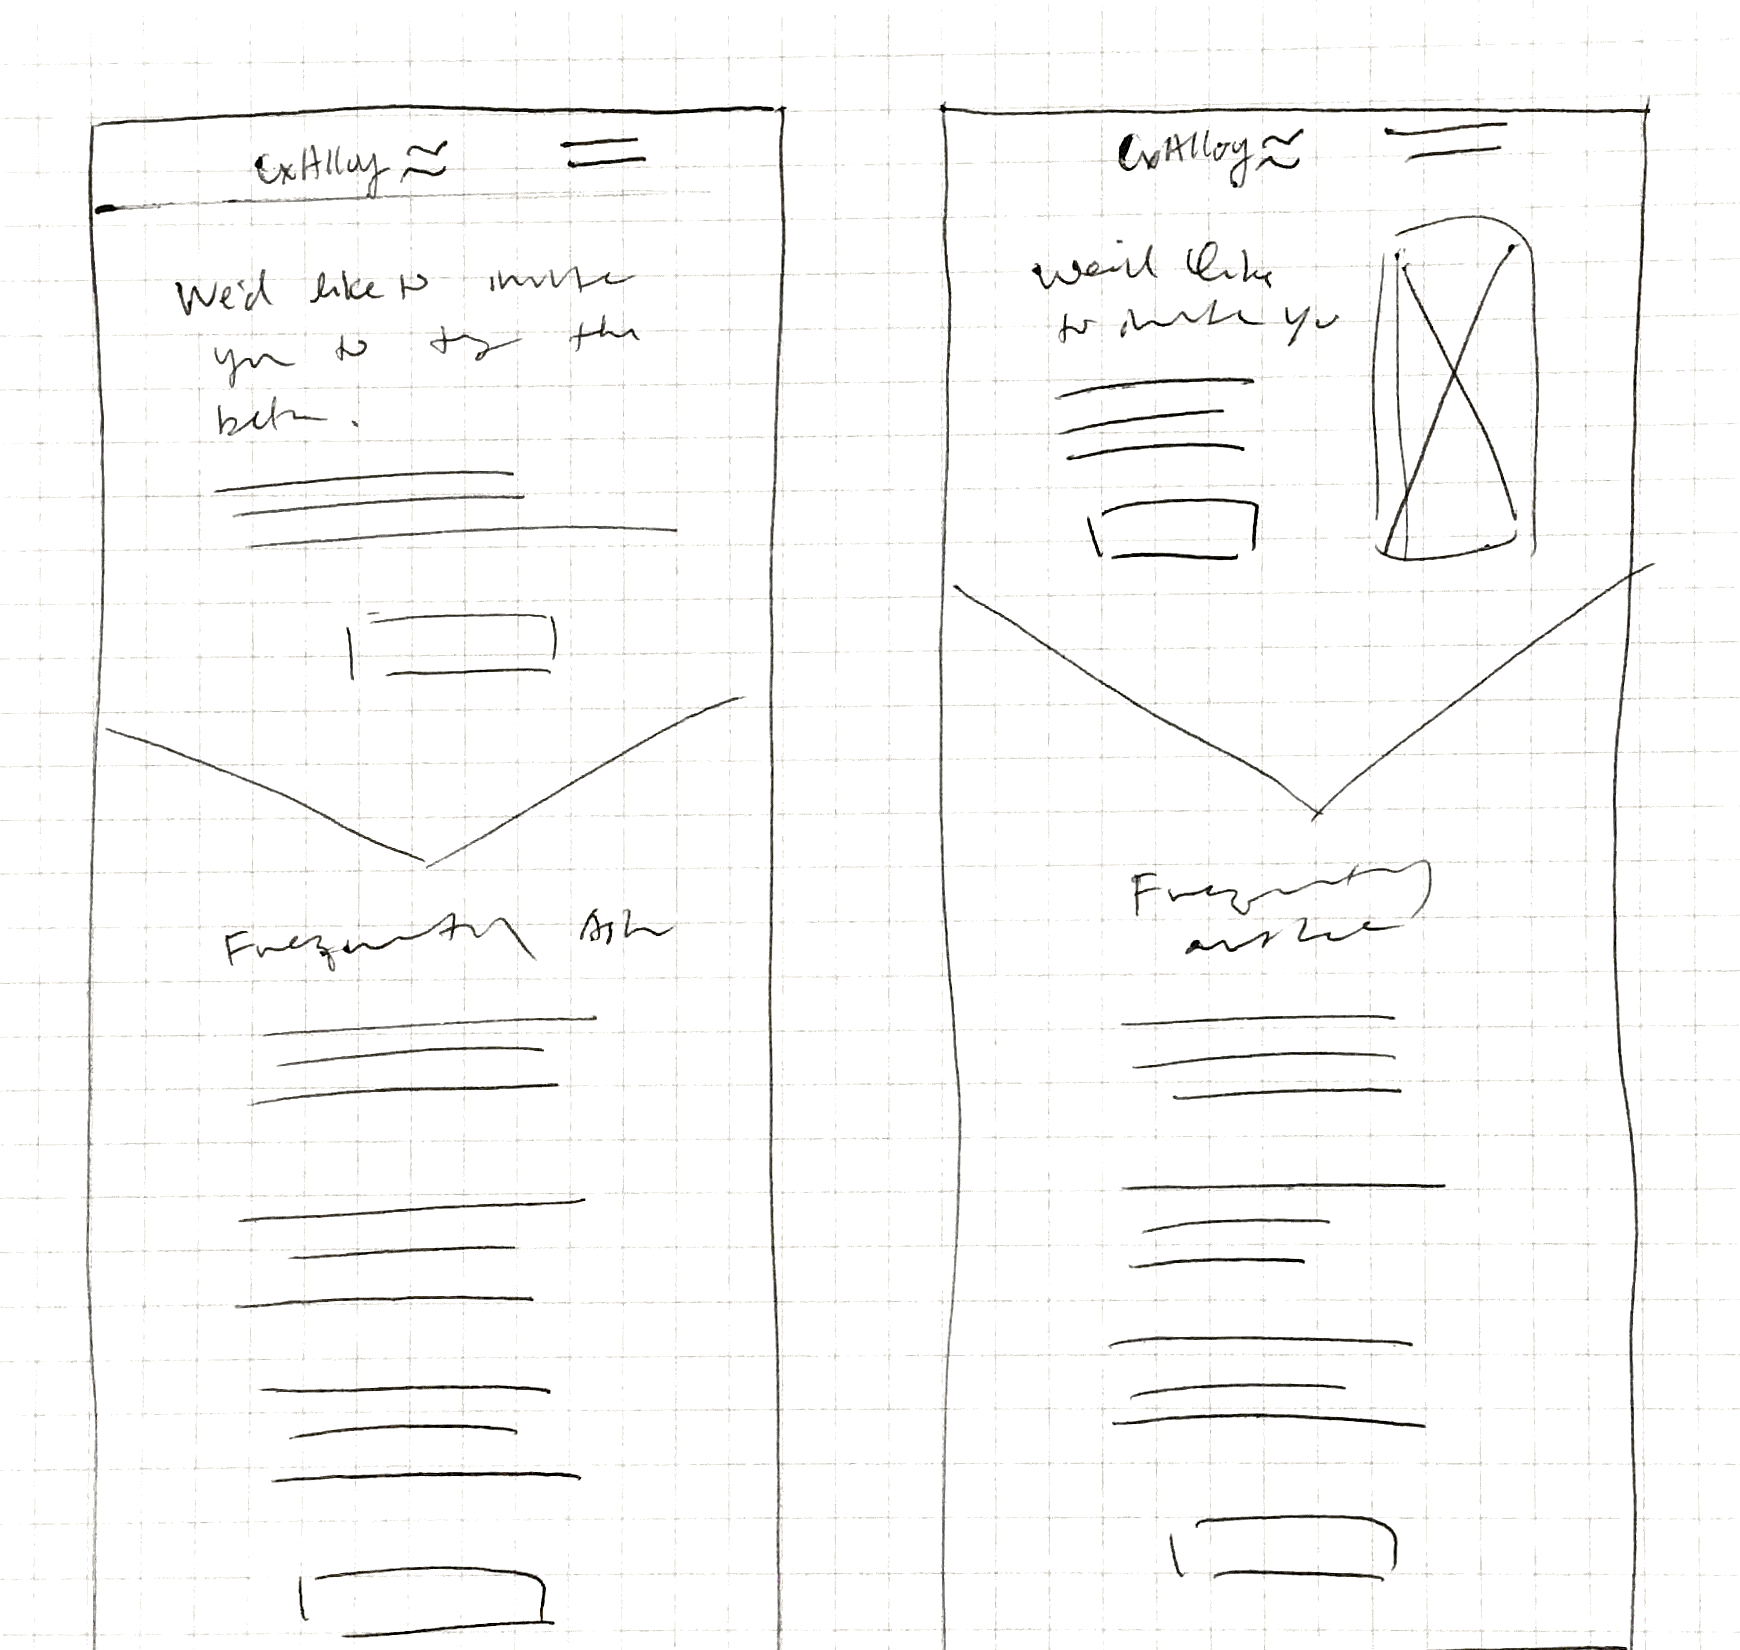 CxAlloy
We'd like to invite
you to try the
beta.
Frequently Ask
CxAlloy
We'd like
to invite you
Frequently